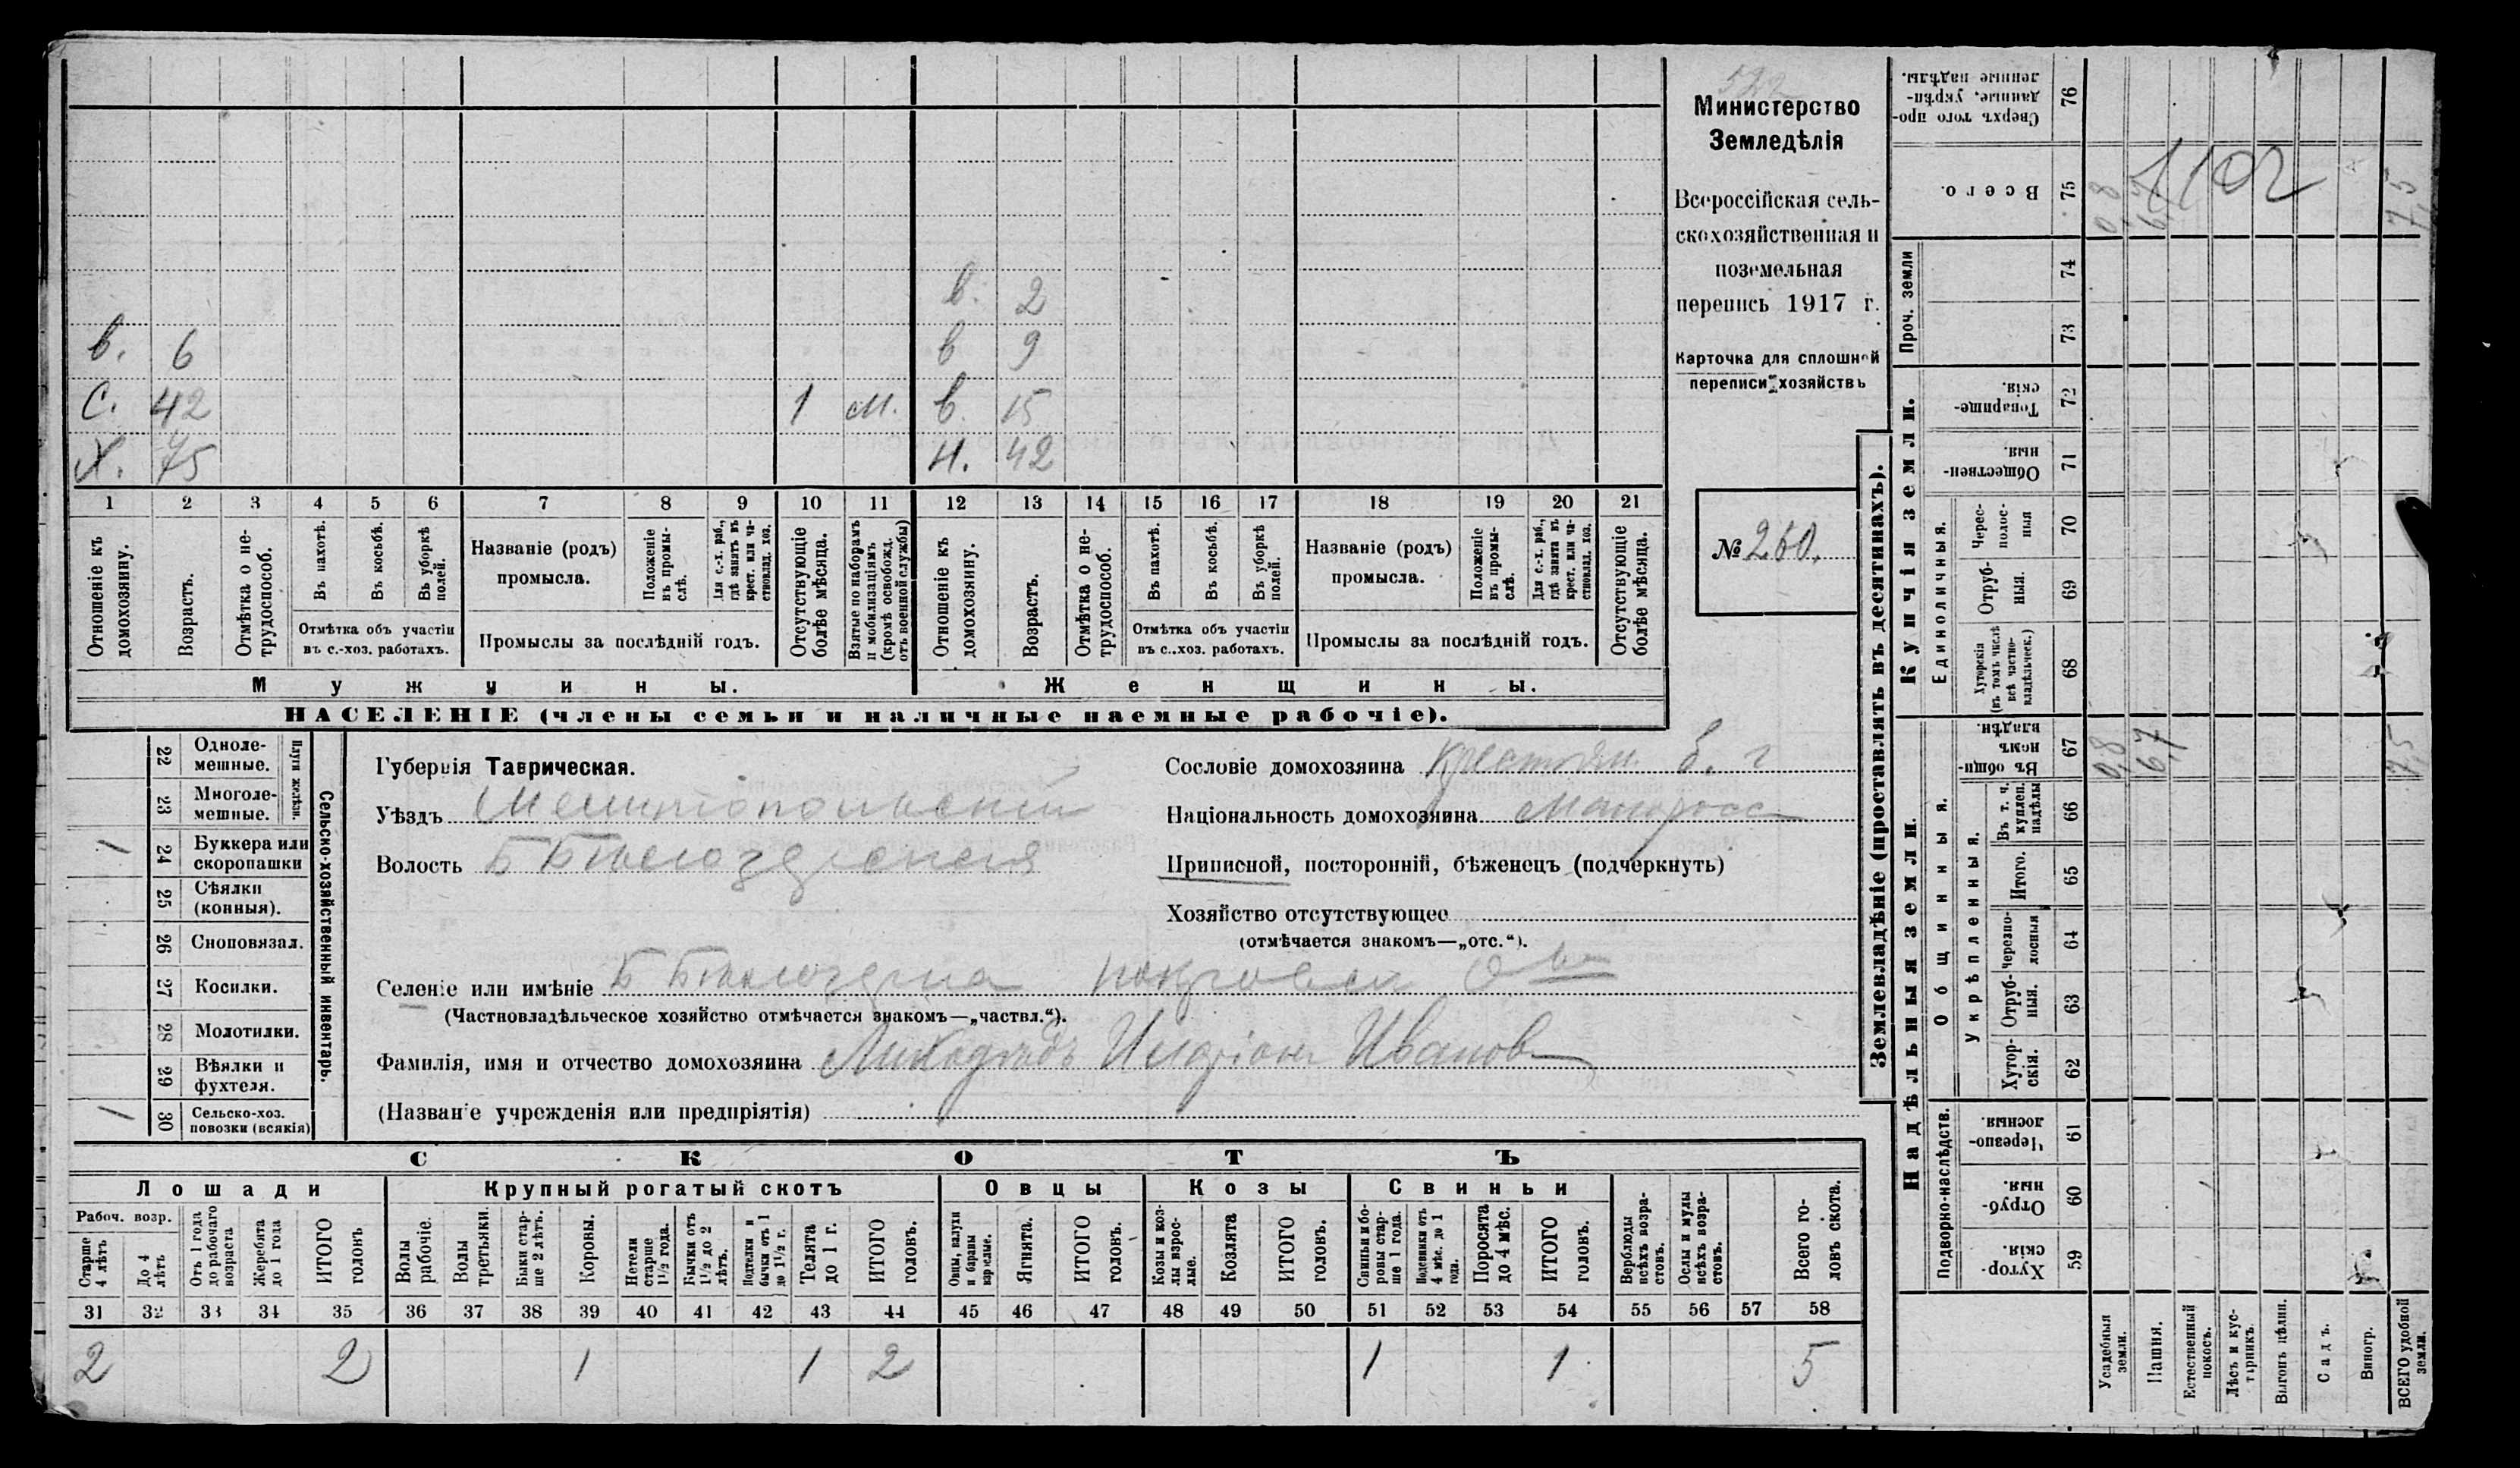 Министерство
Земледѣлія
Всероссійская сель-
скохозяйственная и
поземельная
перепись 1917 г.
Карточка для сплошной
переписи хозяйствъ
№ 260.
в. 2
в. 6 в 9
С. 42 1 м. в. 15
Х. 75 Н. 42
1 2 3 4 5 6 7 8 9 10 11 12 13 14 15 16 17 18 19 20 21
Отношеніе къ домохозяину.
Возрастъ.
Отмѣтка о не-трудоспособ.
Въ пахотѣ.
Въ косьбѣ.
Въ уборкѣ полей.
Отмѣтка объ участіи
въ с.-хоз. работахъ.
Названіе (родъ)
промысла.
Положеніе въ промы-слѣ.
Для с.-х. раб., гдѣ занятъ въ крест. или ча-стновлад. хоз.
Промыслы за послѣдній годъ.
Отсутствующіе болѣе мѣсяца.
Взятые по наборамъ и мобилизаціямъ (кромѣ освобожд. отъ военной службы)
Отношеніе къ домохозяину.
Возрастъ.
Отмѣтка о не-трудоспособ.
Въ пахотѣ.
Въ косьбѣ.
Въ уборкѣ полей.
Отмѣтка объ участіи
въ с..хоз. работахъ.
Названіе (родъ)
промысла.
Положеніе въ промы-слѣ.
Для с.-х. раб., гдѣ занята въ крест. или ча-стновлад. хоз.
Промыслы за послѣдній годъ.
Отсутствующіе болѣе мѣсяца.
Мужчины. Женщины.
НАСЕЛЕНІЕ (члены семьи и наличные наемные рабочіе).
22 Одноле-мешные.
23 Многоле-мешные.
Плуги желѣзн.
/ 24 Буккера или скоропашки
25 Сѣялки (конныя).
26 Сноповязал.
27 Косилки.
28 Молотилки.
29 Вѣялки и фухтеля.
/ 30 Сельско-хоз. повозки (всякія)
Сельско-хозяйственный инвентарь.
Губернія Таврическая.
Уѣздъ Мелитопольскій
Волость Б Бѣлозерская
Сословіе домохозяина крестьян. б. г
Національность домохозяина малоросс
Приписной, посторонній, бѣженецъ (подчеркнуть)
Хозяйство отсутствующее
(отмѣчается знакомъ—„отс.“).
Селеніе или имѣніе Б Бѣлозерка покровск о-ва
(Частновладѣльческое хозяйство отмѣчается знакомъ—„частвл.“).
Фамилія, имя и отчество домохозяина Иларіонъ Иванов
(Названіе учрежденія или предпріятія)
СКОТЪ
Лошади Крупный рогатый скотъ Овцы Козы Свиньи
Рабоч. возр.
Старше 4 лѣтъ
До 4 лѣтъ
Отъ 1 года до рабочаго возраста
Жеребята до 1 года
ИТОГО головъ
Волы рабочіе.
Волы третьяки.
Быки стар-ше 2 лѣтъ.
Коровы.
Нетели старше 1½ года.
Бычки отъ 1½ до 2 лѣтъ.
Подтелки и бычки отъ 1 до 1½ г.
Телята до 1 г.
ИТОГО головъ.
Овцы, валухи и бараны взрослые.
Ягнята.
ИТОГО головъ.
Козы и коз-лы взрос-лые.
Козлята
ИТОГО головъ.
Свиньи и бо-ровы стар-ше 1 года.
Подсвинки отъ 4 мѣс. до 1 года.
Поросята до 4 мѣс.
ИТОГО головъ.
Верблюды всѣхъ возра-стовъ.
Ослы и мулы всѣхъ возра-стовъ.
Всего го-ловъ скота.
31 32 33 34 35 36 37 38 39 40 41 42 43 44 45 46 47 48 49 50 51 52 53 54 55 56 57 58
2 2 1 1 2 1 1 5
Землевладѣніе (проставлять въ десятинахъ).
Купчія земли.
Надѣльныя земли.
Сверхъ того про-данные, укрѣп-ленные надѣлы. 76
Всего. 75 0,8 6,7 7,5
1102
Проч. земли 74 73
Товарище-скія. 72
Обществен-ныя. 71
Единоличныя.
Черес-полос-ныя 70
Отруб-ныя. 69
Хуторскія (въ томъ числѣ всѣ частно-владѣльческ.) 68
Въ общи-номъ владѣн. 67 0,8 6,7 7,5
Общинныя.
Укрѣпленныя.
Въ т. ч. куплен. надѣлы 66
Итого. 65
Черезпо-лосныя 64
Отруб-ныя. 63
Хутор-скія. 62
Подворно-наслѣдств.
Черезпо-лосныя 61
Отруб-ныя. 60
Хутор-скія. 59
Усадебныя земли.
Пашня.
Естественный покосъ.
Лѣсъ и кус-тарникъ.
Выгонъ цѣлин.
Садъ.
Виногр.
ВСЕГО удобной земли.